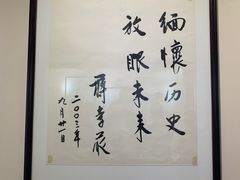 缅懷历史
放眼未来
蒋孝严
二〇〇三年
九月廿一日